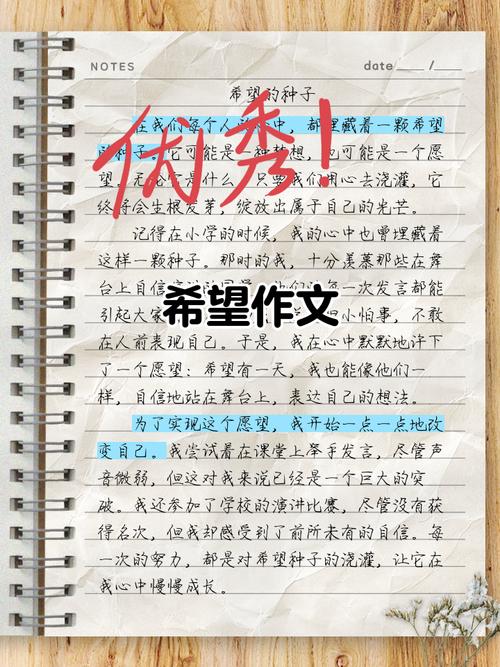 NOTES
date ____ / ____
希望的种子
在我们每个人中，都埋藏着一颗希望
种子，它可能是一种梦想，也可能是一个愿
望。无论它是什么，只要我们用心去浇灌，它
终将会生根发芽，绽放出属于自己的光芒。
优秀！
记得在小学的时候，我的心中也曾埋藏着
这样一颗种子。那时的我，十分羡慕那些在舞
台上自信一次发言都能
引起大家小怕事，不敢
希望作文
在人前表现自己。于是，我在心中默默地许下
了一个愿望：希望有一天，我也能像他们一
样，自信地站在舞台上，表达自己的想法。
为了实现这个愿望，我开始一点一点地改
变自己。我尝试着在课堂上举手发言，尽管声
音微弱，但这对我来说已经是一个巨大的突
破。我还参加了学校的演讲比赛，尽管没有获
得名次，但我却感受到了前所未有的自信。每
一次的努力，都是对希望种子的浇灌，让它在
我心中慢慢成长。